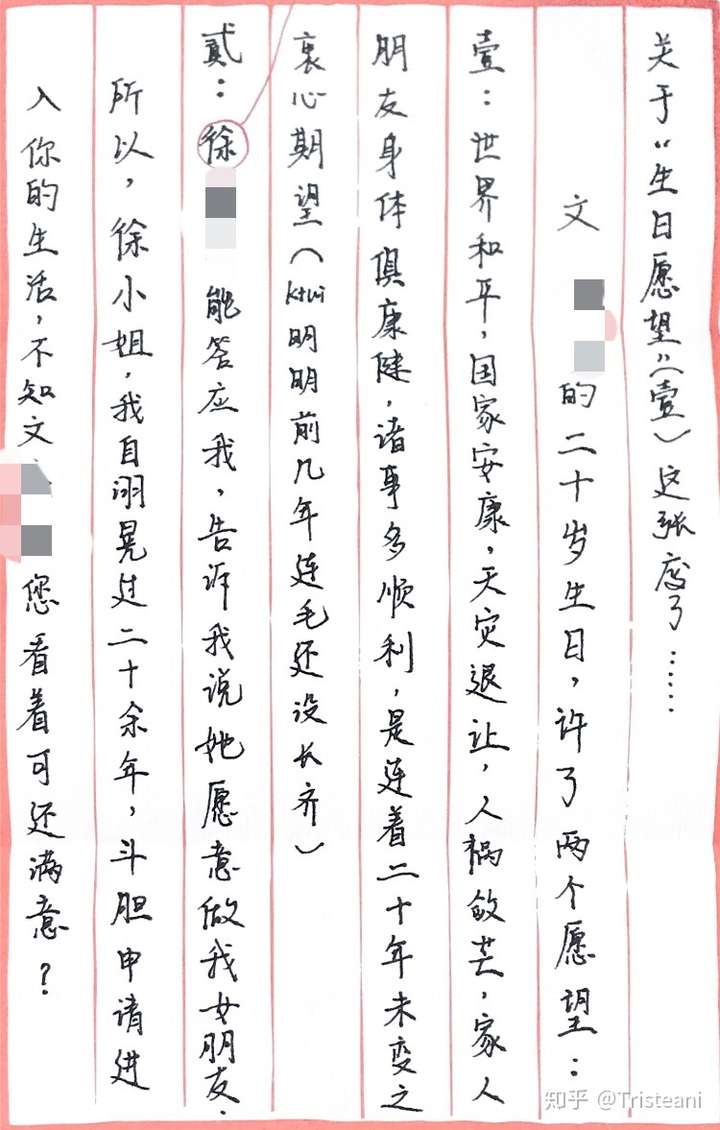 关于“生日愿望”(壹)这张废了……
文 的二十岁生日，许了两个愿望：
壹：世界和平，国家安康，天灾退让，人祸敛芒，家人
朋友身体俱康健，诸事多顺利，是连着二十年未变之
衷心期望（ktui明明前几年连毛还没长齐）
贰：徐 能答应我，告诉我说她愿意做我女朋友.
所以，徐小姐，我自诩晃过二十余年，斗胆申请进
入你的生活，不知文 您看着可还满意？
知乎 @Tristeani